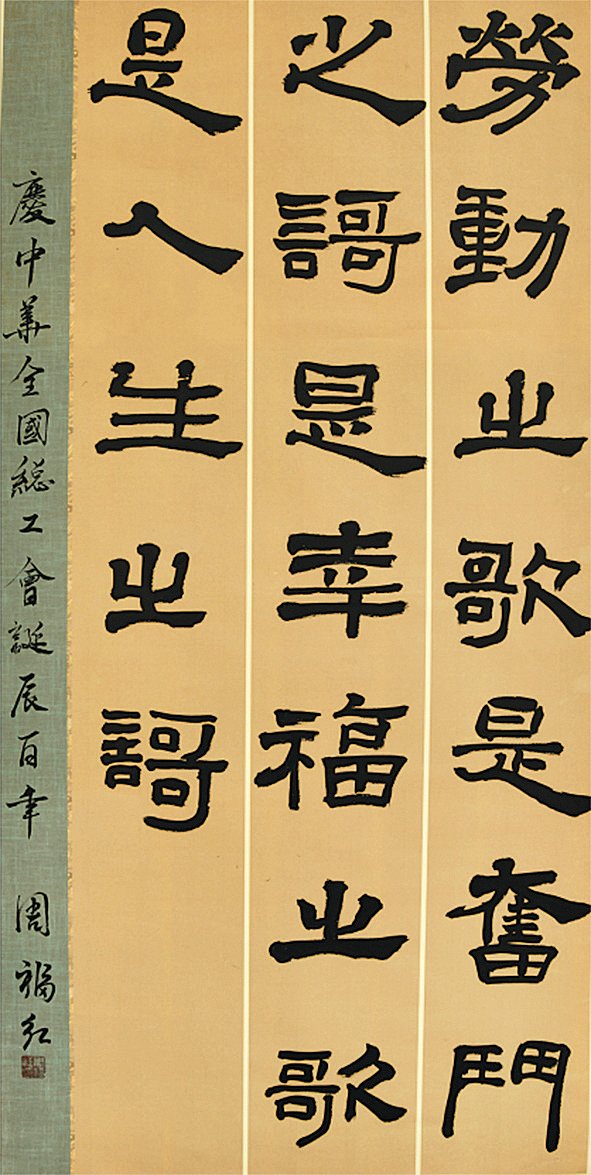 勞動之歌是奮鬥
之謌是幸福之歌
是人生之謌
慶中華全國總工會誕辰百年 周福紅